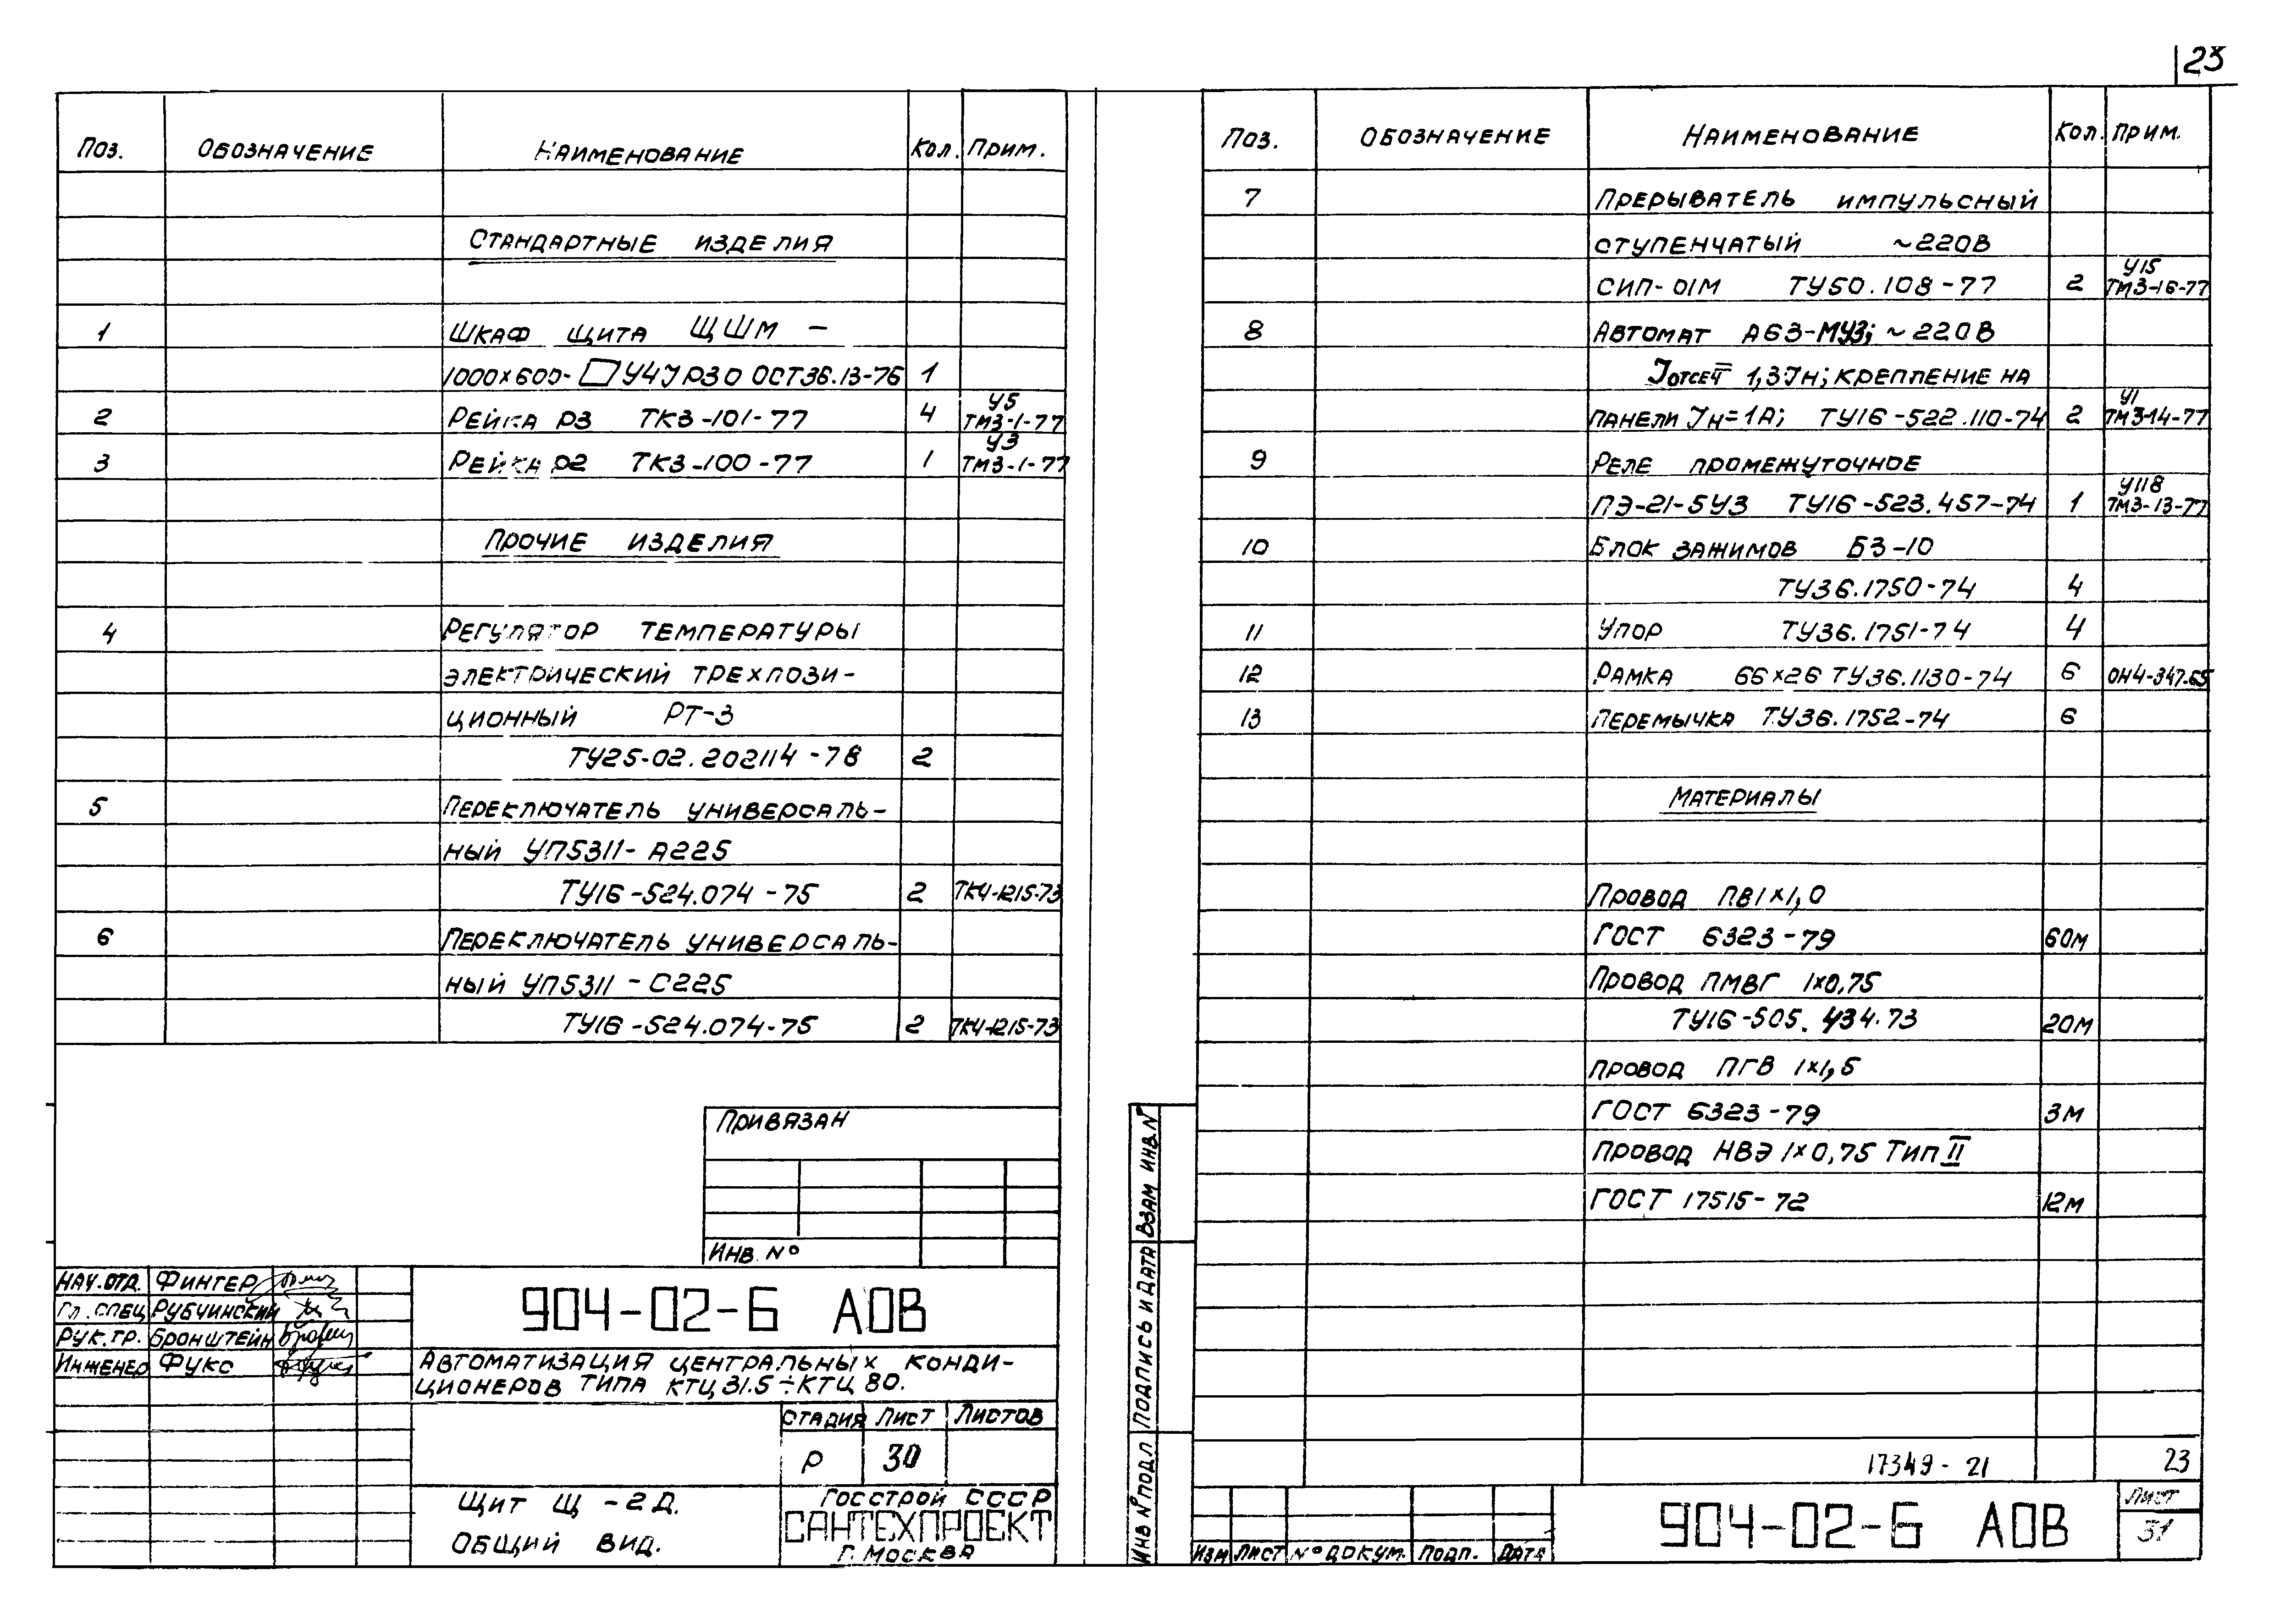 23
Поз. Обозначение Наименование Кол. Прим.
Стандартные изделия
1 Шкаф щита ЩШМ –
1000×600-□У4УР30 ОСТ36.13-76 1
2 Рейка Р3 ТК3-101-77 4 У5 ТМ3-1-77
3 Рейка Р2 ТК3-100-77 1 У3 ТМ3-1-77
Прочие изделия
4 Регулятор температуры
электрический трехпози-
ционный РТ-3
ТУ25-02.202114-78 2
5 Переключатель универсаль-
ный УП5311-А225
ТУ16-524.074-75 2 ТК4-1215-73
6 Переключатель универсаль-
ный УП5311-С225
ТУ16-524.074-75 2 ТК4-1215-73
Привязан
Инв. №
Нач. отд. Фингер
Гл. спец Рубчинский
Рук. гр. Бронштейн
Инженер Фукс
904-02-6 АОВ
Автоматизация центральных конди-
ционеров типа КТЦ 31.5÷КТЦ 80.
Стадия Лист Листов
Р 30
Щит Щ-2Д.
Общий вид.
Госстрой СССР
САНТЕХПРОЕКТ
г. Москва
Поз. Обозначение Наименование Кол. Прим.
7 Прерыватель импульсный
ступенчатый ~220В
СИП-01М ТУ50.108-77 2 У15 ТМ3-16-77
8 Автомат А63-МУ3; ~220В
Jотсеч = 1,3Jн; крепление на
панели Jн=1А; ТУ16-522.110-74 2 У1 ТМ3-14-77
9 Реле промежуточное
ПЭ-21-5У3 ТУ16-523.457-74 1 У118 ТМ3-13-77
10 Блок зажимов БЗ-10
ТУ36.1750-74 4
11 Упор ТУ36.1751-74 4
12 Рамка 66×26 ТУ36.1130-74 6 ОН4-347-65
13 Перемычка ТУ36.1752-74 6
Материалы
Провод ПВ1×1,0
ГОСТ 6323-79 60м
Провод ПМВГ 1×0,75
ТУ16-505.434.73 20м
Провод ПГВ 1×1,5
ГОСТ 6323-79 3м
Провод НВЭ 1×0,75 Тип II
ГОСТ 17515-72 12м
17349-21 23
Взам инв.№
Подпись и дата
Инв № подл
Изм Лист № докум. Подп. Дата
904-02-6 АОВ
Лист
31